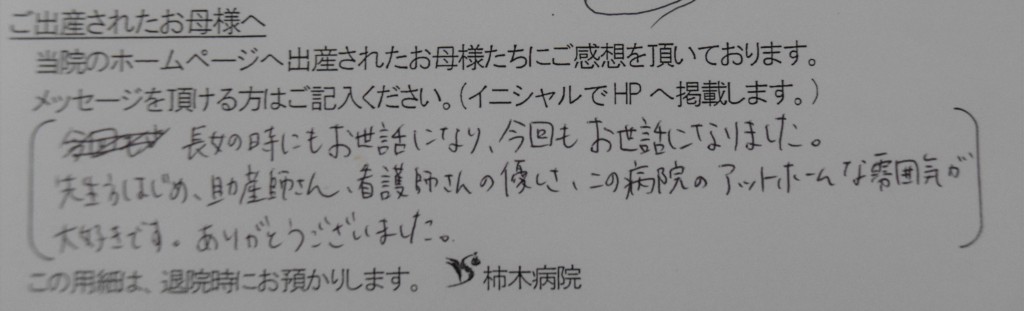 ご出産されたお母様へ
当院のホームページへ出産されたお母様たちにご感想を頂いております。
メッセージを頂ける方はご記入ください。(イニシャルでHPへ掲載します。)
長女の時にもお世話になり、今回もお世話になりました。
先生はじめ、助産師さん、看護師さんの優しさ、この病院のアットホームな雰囲気が
大好きです。ありがとうございました。
この用細は、退院時にお預かりします。 柿木病院